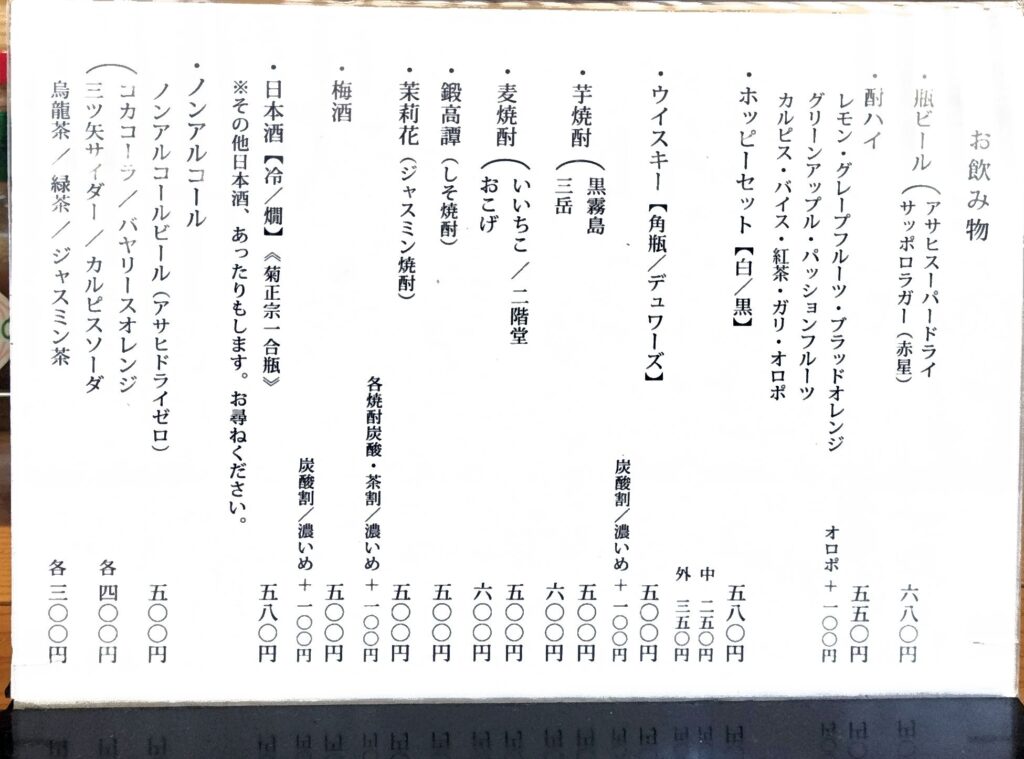 お飲み物
・瓶ビール（アサヒスーパードライ
サッポロラガー（赤星） 六八〇円
・酎ハイ
レモン・グレープフルーツ・ブラッドオレンジ 五五〇円
グリーンアップル・パッションフルーツ オロポ＋一〇〇円
カルピス・バイス・紅茶・ガリ・オロポ
・ホッピーセット【白／黒】 五八〇円
中 二五〇円
外 三五〇円
・ウイスキー【角瓶／デュワーズ】 五〇〇円
炭酸割／濃いめ＋一〇〇円
・芋焼酎（黒霧島 五〇〇円
三岳 六〇〇円
・麦焼酎（いいちこ／二階堂 五〇〇円
おこげ 六〇〇円
・鍛高譚（しそ焼酎） 五〇〇円
・茉莉花（ジャスミン焼酎） 五〇〇円
各焼酎炭酸・茶割／濃いめ＋一〇〇円
・梅酒 五〇〇円
炭酸割／濃いめ＋一〇〇円
・日本酒【冷／燗】《菊正宗一合瓶》 五八〇円
※その他日本酒、あったりもします。お尋ねください。
・ノンアルコール
ノンアルコールビール（アサヒドライゼロ） 五〇〇円
（コカコーラ／バヤリースオレンジ
三ツ矢サイダー／カルピスソーダ 各四〇〇円
烏龍茶／緑茶／ジャスミン茶 各三〇〇円